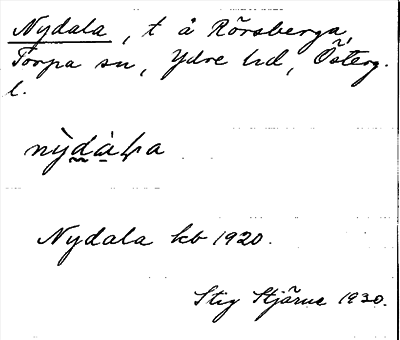 Nydala, t å Rörsberga,
Torpa sn, Ydre hd, Österg.
l.
nỳdàⱡa
Nydala kb 1920.
Stig Stjärne 1930.